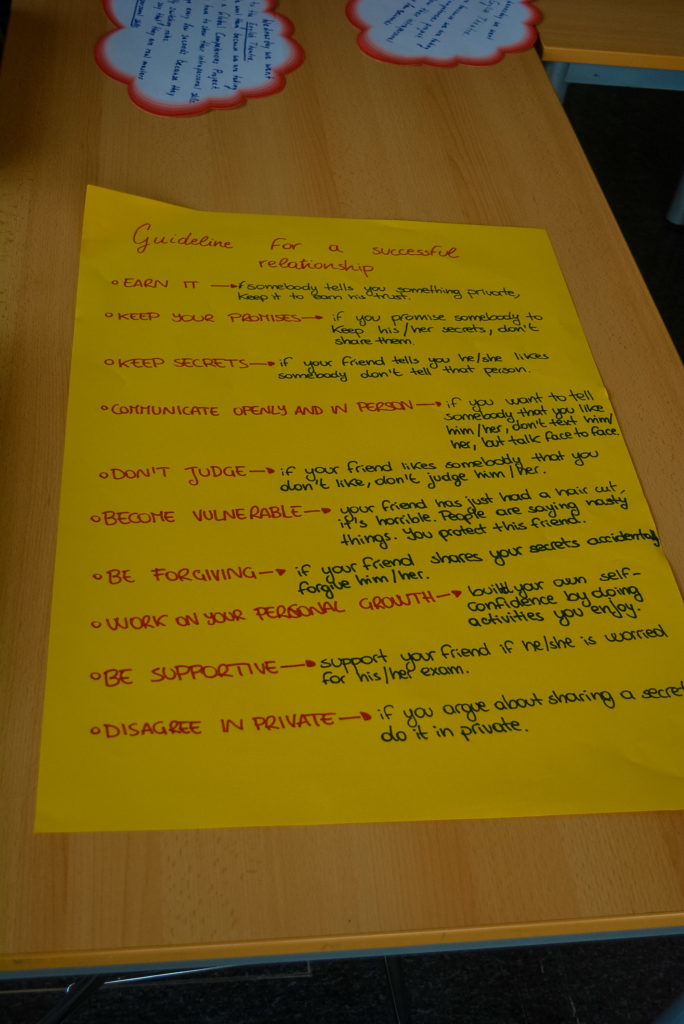 Wednesday we went
to the English Theatre.
because we are doing
a Global Competences Project
have to show their interpersonal skills
every few seconds because they
Guideline for a successful
relationship
EARN IT → if somebody tells you something private,
keep it to earn his trust.
KEEP YOUR PROMISES → if you promise somebody to
keep his/her secrets, don't
share them.
KEEP SECRETS → if your friend tells you he/she likes
somebody don't tell that person.
COMMUNICATE OPENLY AND IN PERSON → if you want to tell
somebody that you like
him/her, don't text him/
her, but talk face to face.
DON'T JUDGE → if your friend likes somebody that you
don't like, don't judge him/her.
BECOME VULNERABLE → your friend has just had a hair cut,
it's horrible. People are saying nasty
things. You protect this friend.
BE FORGIVING → if your friend shares your secrets accidentally
forgive him/her.
WORK ON YOUR PERSONAL GROWTH → build your own self-
confidence by doing
activities you enjoy.
BE SUPPORTIVE → support your friend if he/she is worried
for his/her exam.
DISAGREE IN PRIVATE → if you argue about sharing a secret
do it in private.